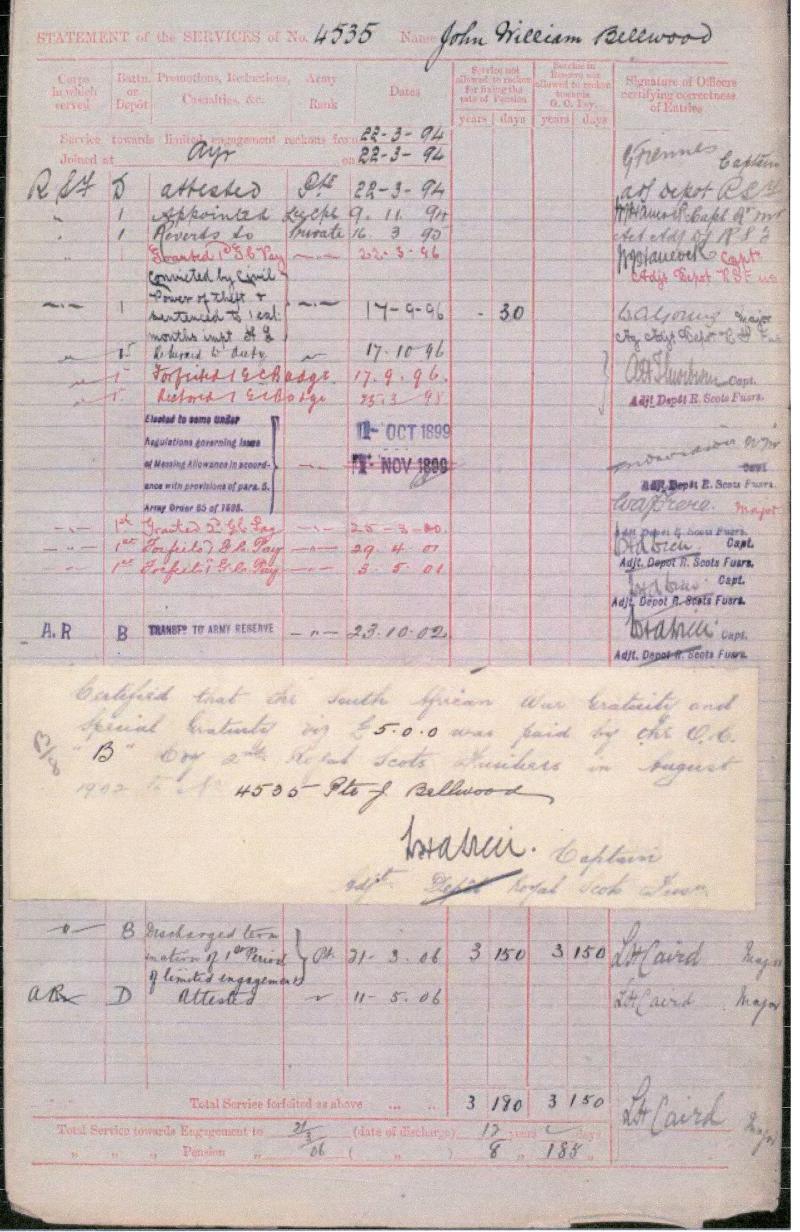 STATEMENT of the SERVICES of No. 4535 Name John William Bellwood
Corps in which served
Battn. or Depôt
Promotions, Reductions, Casualties, &c.
Army Rank
Dates
Service not allowed to reckon for fixing the rate of Pension
years days
Service in Reserve not allowed to reckon towards G. C. Pay.
years days
Signature of Officers certifying correctness of Entries
Service towards limited engagement reckons from 22-3-94
Joined at Ayr on 22-3-94
R S F D attested Pte 22-3-94
Captain
adj Depot R S F
" 1 Appointed 9. 11. 94
" 1 Reverts to Private 16. 3 95
" 1 Granted 1st G C Pay 22-3-96
W J Hancock Capt
Adjt Depot R S Fus
convicted by Civil
Power of theft &
1 sentenced to 1 cal: 17-9-96 - 30
months impt H L
Major
Returned to duty 17-10-96
Forfeited 1 G C Badge 17.9.96.
Restored 1 G C Badge
Capt.
Adjt. Depôt R. Scots Fusrs.
Elected to come under
Regulations governing issue
of Messing Allowance in accord-
ance with provisions of para. 5.
Army Order 65 of 1898.
1- OCT 1899
1- NOV 1899
Capt
Adjt. Depôt R. Scots Fusrs.
Major
1st Granted 2nd G C Pay
Adjt. Depôt R. Scots Fusrs.
1st Forfeited G. C. Pay 29. 4. 01
Capt.
Adjt. Depot R. Scots Fusrs.
1st Forfeited G. C. Pay 5. 5. 01
Capt.
Adjt. Depot R. Scots Fusrs.
A.R B TRANSFD TO ARMY RESERVE -"- 23.10.02
Capt.
Adjt. Depot R. Scots Fusrs.
Certified that the South African War Gratuity and
Special Gratuity viz £5.0.0 was paid by the O.C.
"B" Coy 2nd Royal Scots Fusiliers in August
1902 to No 4535 Pte J. Bellwood
Captain
Adjt Depôt Royal Scots Fusrs
" B Discharged term
ination of 1st Period Pte. 21-3.06 3 150 3 150 L H Caird Major
of limited engagement
AR D Attested " 11-5.06 L H Caird Major
Total Service forfeited as above ... ... 3 180 3 150
L H Caird Major
Total Service towards Engagement to 21/3/06 (date of discharge) 12 years - days
" " " Pension " ( " ) 8 " 185 "